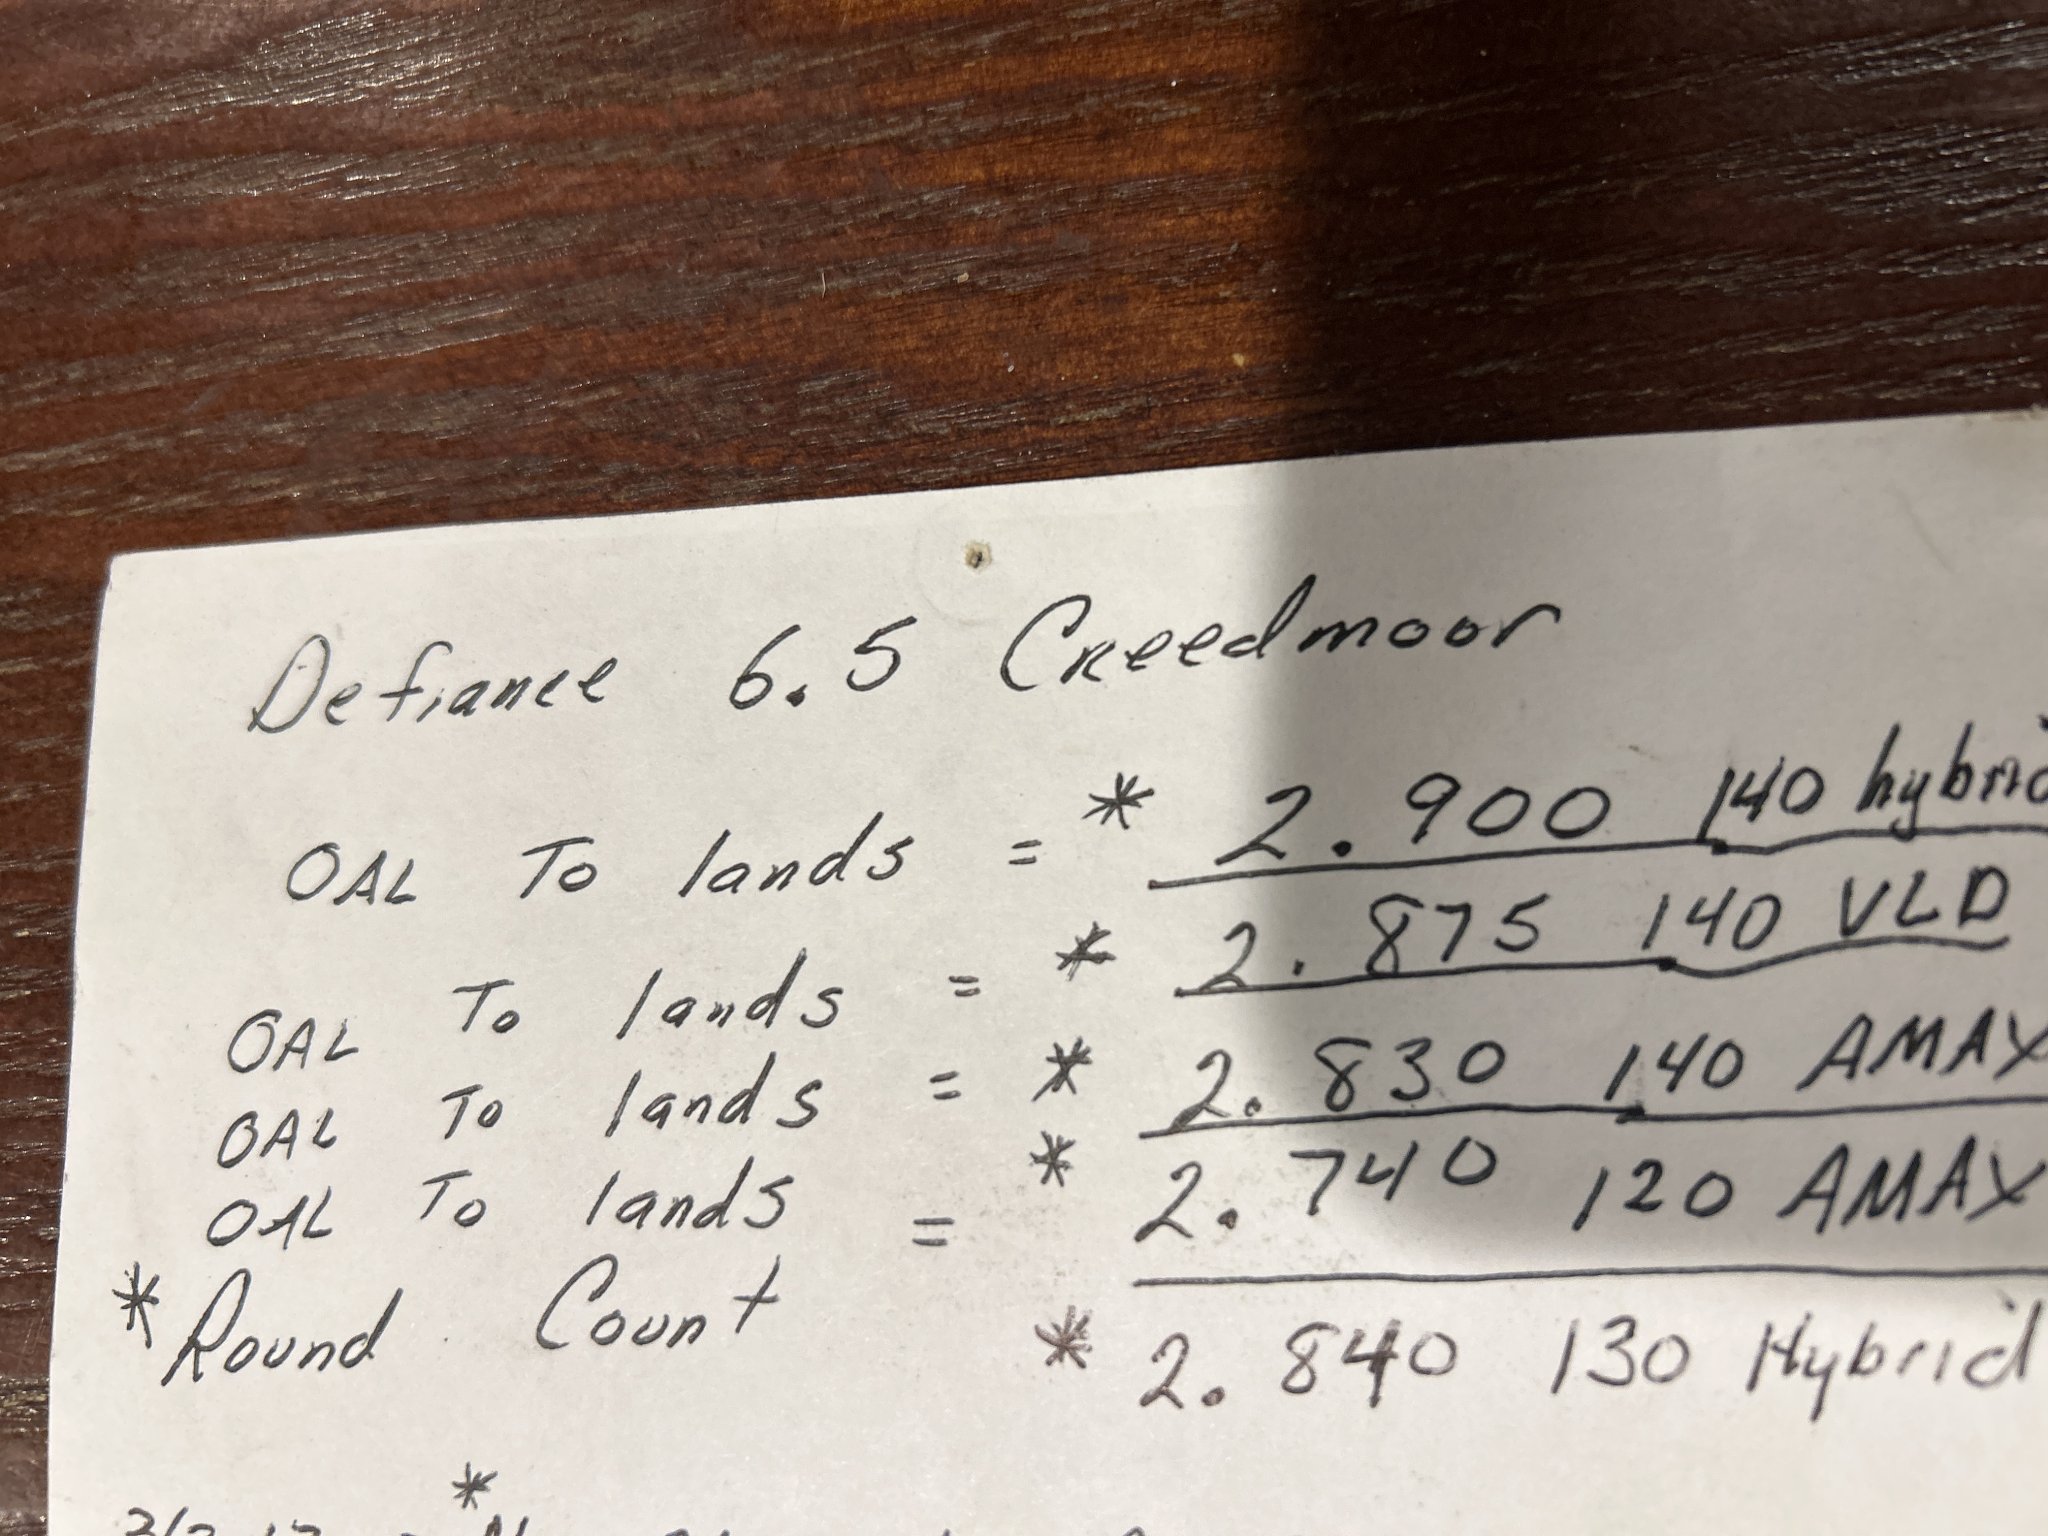 Defiance 6.5 Creedmoor
OAL To lands = * 2.900 140 hybrid
OAL To lands = * 2.875 140 VLD
OAL To lands = * 2.830 140 AMAX
OAL To lands = * 2.740 120 AMAX
*Round Count * 2.840 130 Hybrid
*